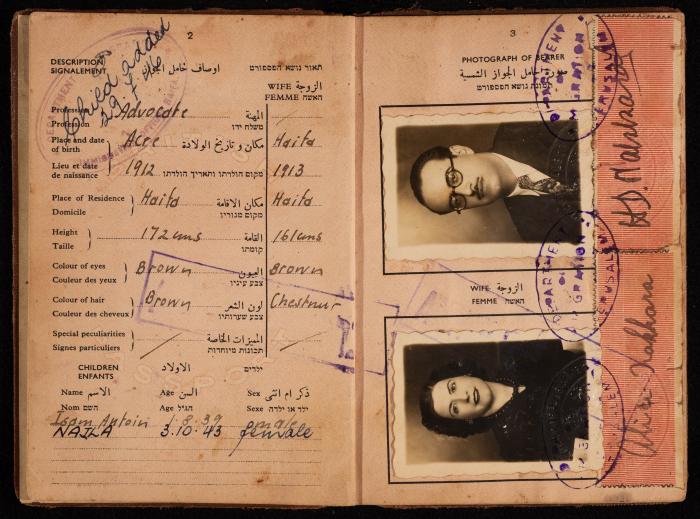 2
Child added
DESCRIPTION
SIGNALEMENT
اوصاف حامل الجواز
תאור נושא הפספורט
WIFE الزوجة
FEMME האשה
Profession
Profession
Advocate
المهنة
משלח ידו
Place and date
of birth
Acre
مكان و تاريخ الولادة
Haifa
Lieu et date
de naissance
1912
מקום הולדתו ותאריך הולדתו
1913
Place of Residence
Domicile
Haifa
مكان الاقامة
מקום מגוריו
Haifa
Height
Taille
172 cms
القامة
קומתו
161 cms
Colour of eyes
Couleur des yeux
Brown
العيون
צבע עיניו
Brown
Colour of hair
Couleur des cheveux
Brown
لون الشعر
צבע שערותיו
Chestnut
Special peculiarities
Signes particuliers
المميزات الخاصة
תכונות מיוחדות
CHILDREN
ENFANTS
الاولاد
ילדים
Name الاسم
Age السن
Sex ذكر ام انثى
Nom השם
Age הגיל
Sexe ילד או ילדה
Isam Antoin 1.8.39 male
NAJLA 3.10.43 female
3
PHOTOGRAPH OF BEARER
صورة حامل الجواز الشمسية
תמונת נושא הפספורט
WIFE الزوجة
FEMME האשה
DEPARTMENT OF MIGRATION JERUSALEM
DEPARTMENT OF MIGRATION JERUSALEM